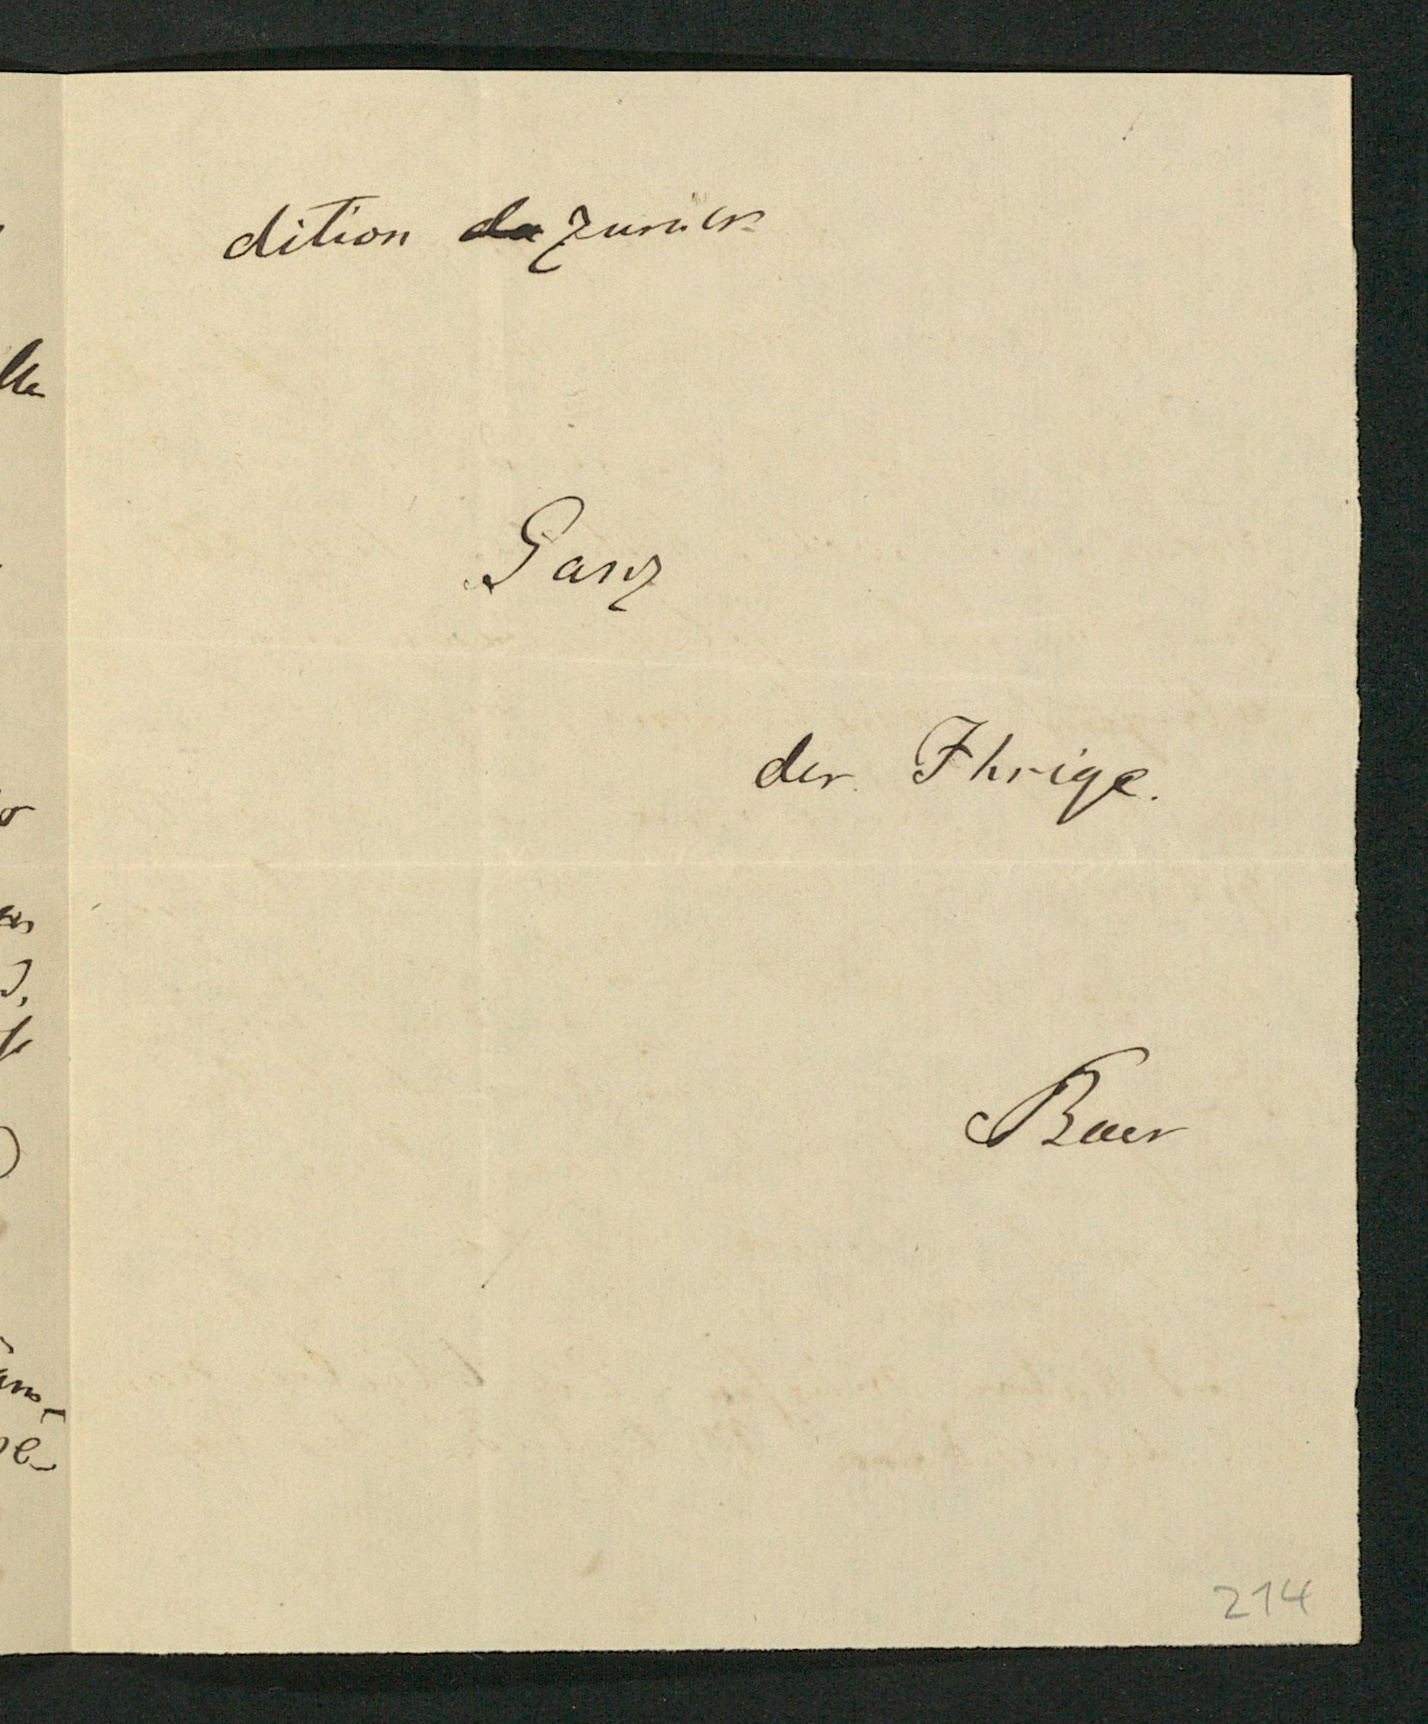 dition da zurück
Ganz
der Ihrige.
Baer
214